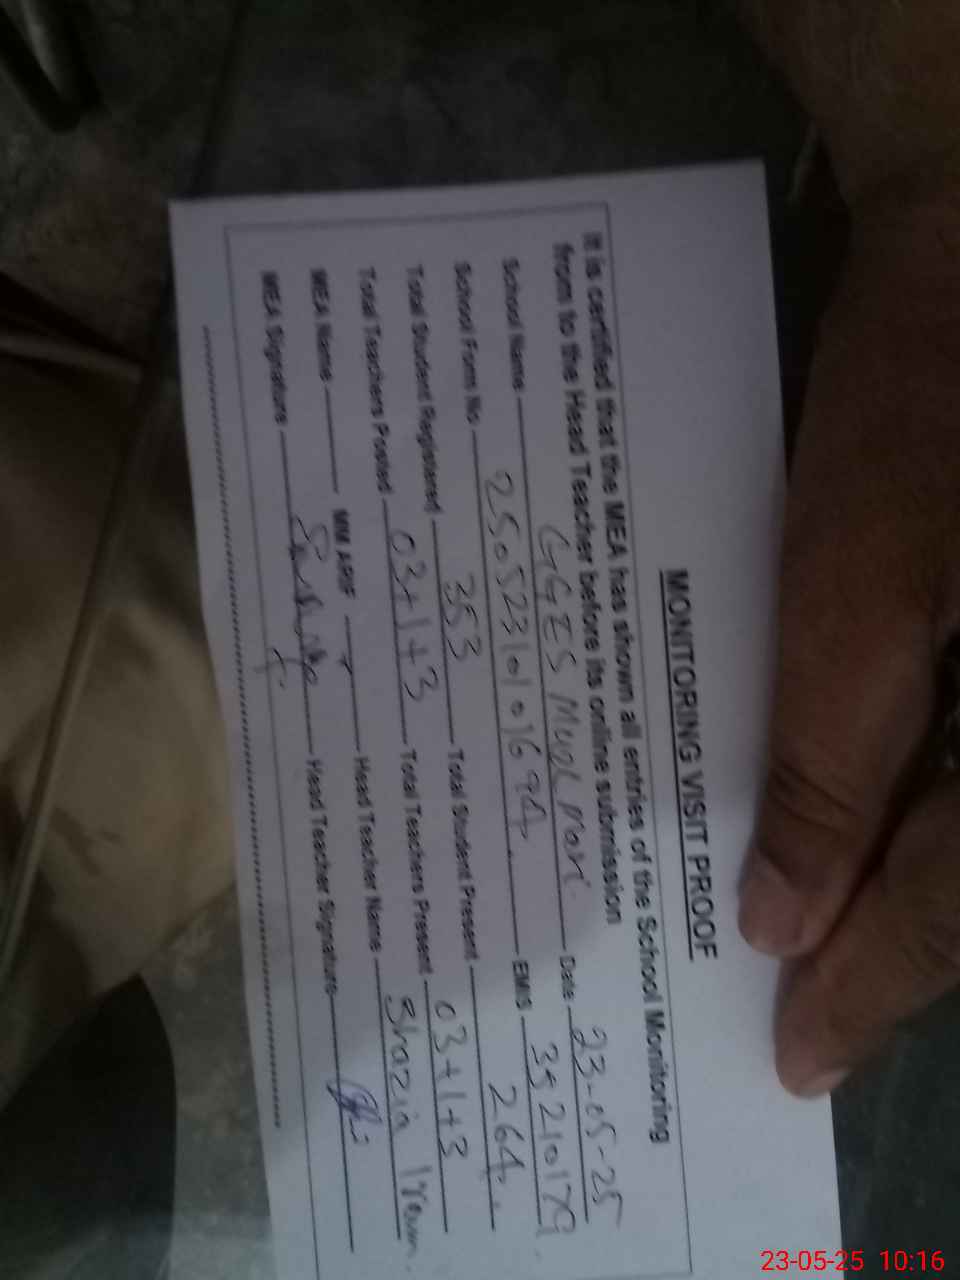 MONITORING VISIT PROOF
It is certified that the MEA has shown all entries of the School Monitoring
from to the Head Teacher before its online submission
School Name GGES Date 23-05-25
School Form No EMIS 35210179
Total Student Registered 353 Total Student Present 264
Total Teachers Posted 03+1+3 Total Teachers Present 03+1+3
MEA Name MM ARIF Head Teacher Name Shazia Iram
MEA Signature Head Teacher Signature
23-05-25 10:16